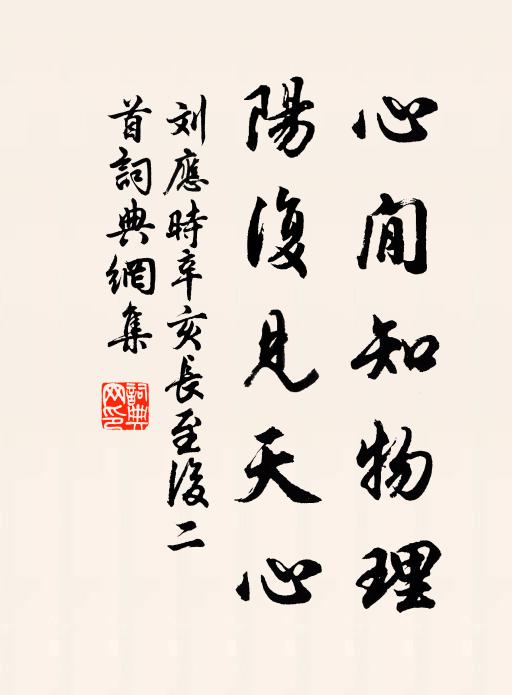 心閒知物理
陽復見天心
刘應時辛亥長至後二
首詞典網集
詞典
网印